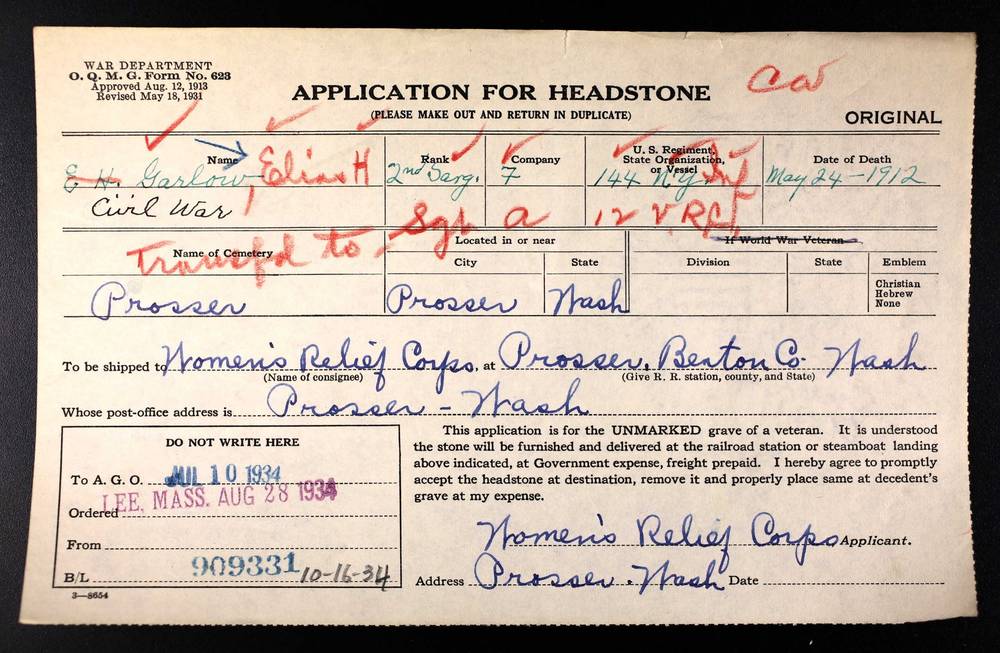 WAR DEPARTMENT
O. Q. M. G. Form No. 623
Approved Aug. 12, 1913
Revised May 18, 1931
APPLICATION FOR HEADSTONE
(PLEASE MAKE OUT AND RETURN IN DUPLICATE)
CW
ORIGINAL
Name
Rank
Company
U. S. Regiment, State Organization, or Vessel
Date of Death
E H. Garlow, Elias H
2nd Sarg.
7
144 N.Y. Inf
May 24-1912
Civil War
Sgt
a
12 V.R.C.
Transfd to
Name of Cemetery
Located in or near
If World War Veteran
City
State
Division
State
Emblem
Christian
Hebrew
None
Prosser
Prosser
Wash
To be shipped to Women's Relief Corps, at Prosser, Benton Co. Wash
(Name of consignee)
(Give R. R. station, county, and State)
Whose post-office address is Prosser - Wash
DO NOT WRITE HERE
To A. G. O. JUL 10 1934
LEE, MASS. AUG 28 1934
Ordered
From
B/L 909331 10-16-34
3—8654
This application is for the UNMARKED grave of a veteran. It is understood
the stone will be furnished and delivered at the railroad station or steamboat landing
above indicated, at Government expense, freight prepaid. I hereby agree to promptly
accept the headstone at destination, remove it and properly place same at decedent's
grave at my expense.
Women's Relief Corps Applicant.
Address Prosser. Wash Date